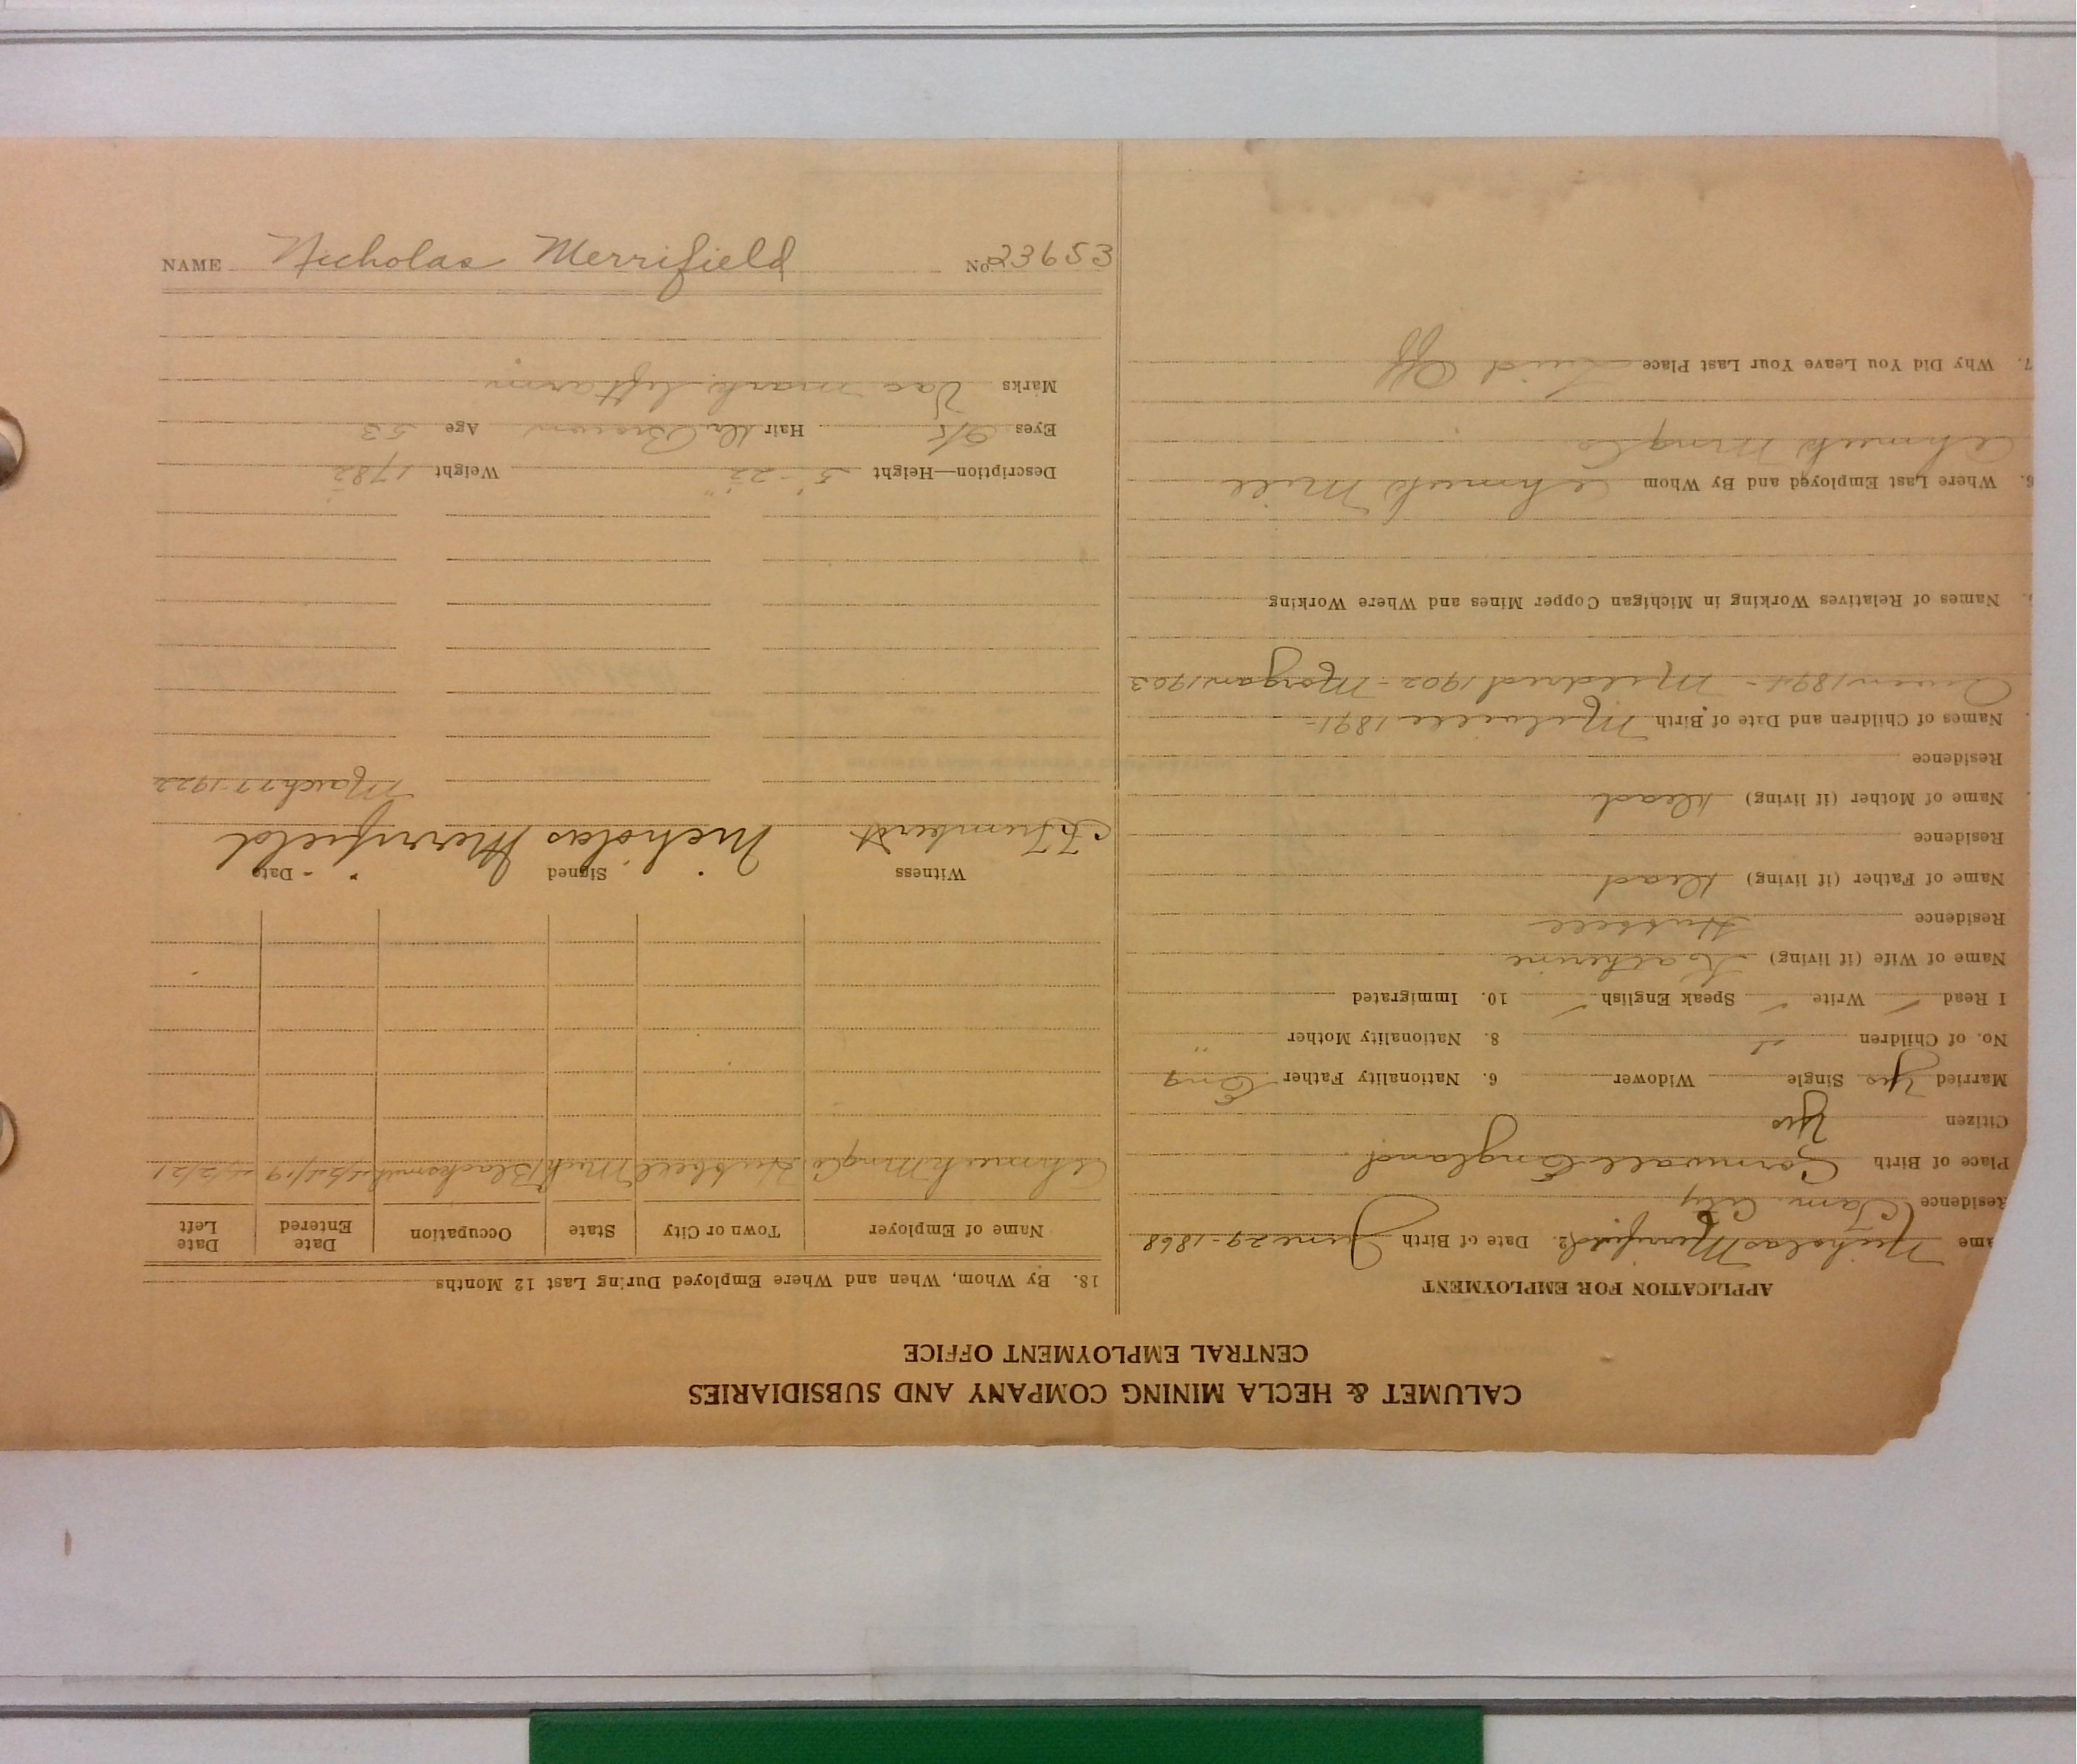 CALUMET & HECLA MINING COMPANY AND SUBSIDIARIES
CENTRAL EMPLOYMENT OFFICE
APPLICATION FOR EMPLOYMENT
ame Nicholas Merrifield 2. Date of Birth June 29-1868
Residence Tam. City
Place of Birth Cornwall England
Citizen Yes
Married Yes Single Widower 6. Nationality Father Eng
No. of Children 4 8. Nationality Mother "
I Read ✓ Write ✓ Speak English ✓ 10. Immigrated
Name of Wife (if living) Katherine
Residence Hubbell
Name of Father (if living) Dead
Residence
Name of Mother (if living) Dead
Residence
Names of Children and Date of Birth Melville 1891-
1894- Mildred 1902- Morgan 1903
Names of Relatives Working in Michigan Copper Mines and Where Working
6. Where Last Employed and By Whom Ahmeek Mill
Ahmeek Mng Co
7. Why Did You Leave Your Last Place Laid Off
18. By Whom, When and Where Employed During Last 12 Months
Name of Employer Town or City State Occupation Date Entered Date Left
Ahmeek Mng Co Hubbell Mich Blacksmith 4/21/19 4/2/21
Witness Signed Date
Nicholas Merrifield March 17-1922
Description—Height 5'-2½" Weight 178
Eyes Hair Dk Brown Age 53
Marks Vac mark left arm
NAME Nicholas Merrifield No. 23653